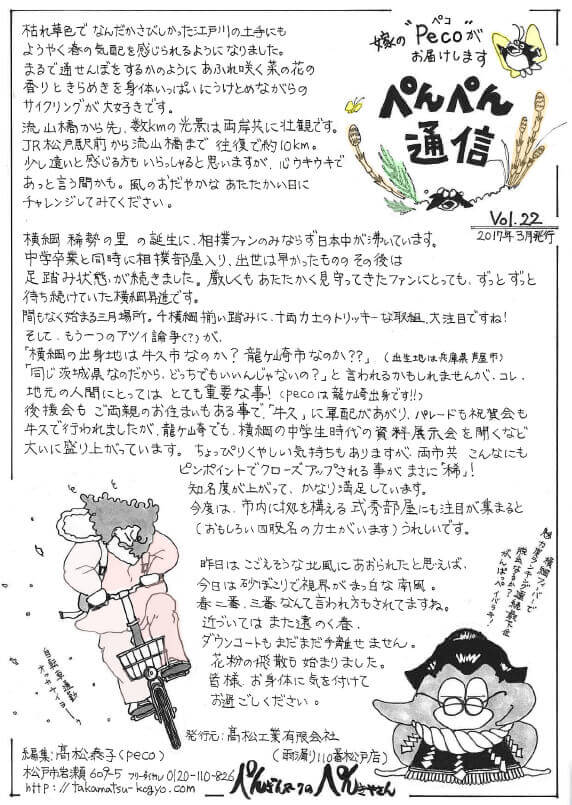 嫁の"Peco"が
ペコ
お届けします
ぺんぺん
通信
Vol.22
2017年3月発行
枯れ草色で なんだかさびしかった江戸川の土手にも
ようやく春の気配を感じられるようになりました。
まるで通せんぼをするかのように あふれ咲く菜の花の
香りときらめきを身体いっぱいにうけとめながらの
サイクリングが大好きです。
流山橋から先、数kmの光景は両岸共に壮観です。
JR松戸駅前から流山橋まで 往復で約10km。
少し遠いと感じる方もいらっしゃると思いますが、心ウキウキで
あっと言う間かも。風のおだやかな あたたかい日に
チャレンジしてみてください。
横綱 稀勢の里 の誕生に、相撲ファンのみならず日本中が沸いています。
中学卒業と同時に相撲部屋入り、出世は早かったものの その後は
足踏み状態が続きました。厳しくも あたたかく見守ってきたファンにとっても、ずっとずっと
待ち続けていた横綱昇進です。
間もなく始まる三月場所。4横綱揃い踏みに、十両力士のトリッキーな取組、大注目ですね!
そして、もう一つのアツイ論争(?)が、
「横綱の出身地は牛久市なのか?龍ケ崎市なのか??」(出生地は兵庫県芦屋市)
「同じ茨城県なのだから、どっちでもいいんじゃないの?」と言われるかもしれませんが、コレ、
地元の人間にとっては とても重要な事!(pecoは龍ケ崎出身です!!)
後援会も ご両親のお住まいもある事で、「牛久」に軍配があがり、パレードも祝賀会も
牛久で行われましたが、龍ケ崎でも、横綱の中学生時代の資料展示会を開くなど
大いに盛り上がっています。 ちょっぴりくやしい気持ちもありますが、両市共 こんなにも
ピンポイントでクローズアップされる事が まさに「稀」!
知名度が上がって、かなり満足しています。
今度は、市内に拠を構える 式秀部屋にも注目が集まると
(おもしろい四股名の力士がいます)うれしいです。
昨日は こごえそうな北風にあおられたと思えば、
今日は砂ぼこりで視界がまっ白な南風。
春二番、三番なんて言われ方もされてますね。
近づいてはまた遠のく春、
ダウンコートもまだまだ手離せません。
花粉の飛散も始まりました。
皆様、お身体に気を付けて
お過ごしください。
横綱フィーバーで
魅力度ランキング連続最下位
脱出なるか?
がんばっぺ イバラキ!
自転車通勤
オッカナイヨ〜
発行元:髙松工業有限会社
(雨漏り110番松戸店)
編集:髙松泰子(peco)
松戸市岩瀬609-5 フリーダイヤル 0120-110-826
http://takamatsu-kogyo.com
ぺんぎんマークのぺんきやさん